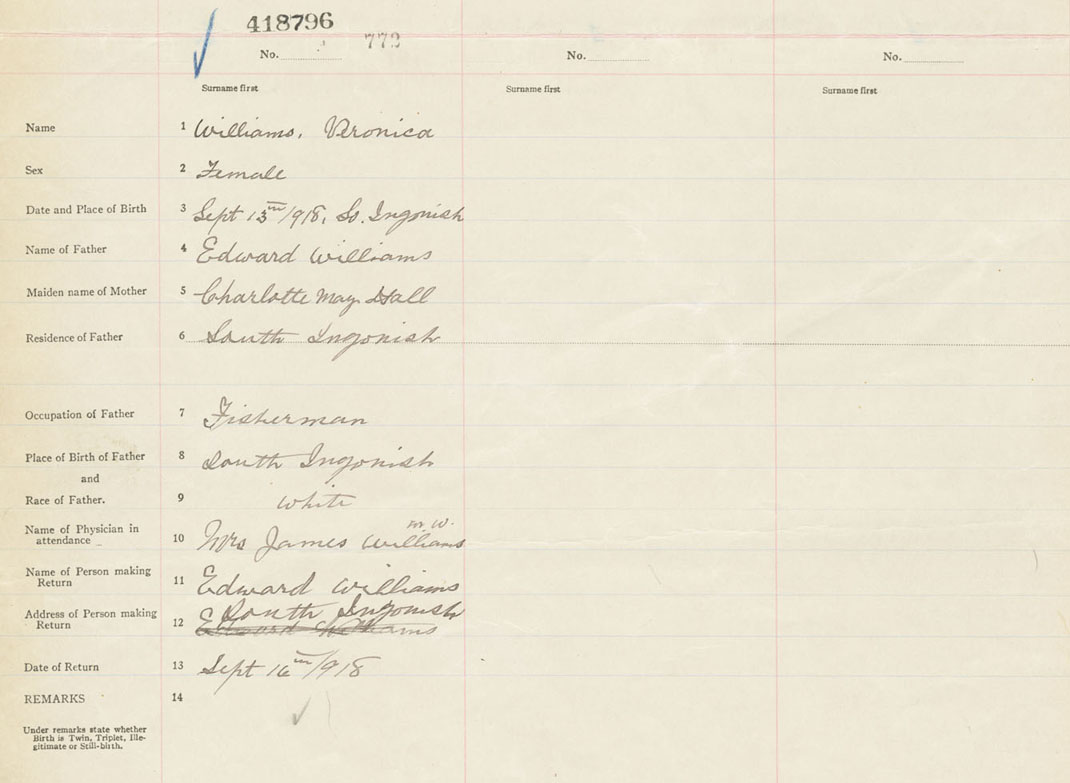 418796
773
No. No. No.
Surname first Surname first Surname first
Name 1 Williams, Veronica
Sex 2 Female
Date and Place of Birth 3 Sept 13th/918, So. Ingonish
Name of Father 4 Edward Williams
Maiden name of Mother 5 Charlotte May Hall
Residence of Father 6 South Ingonish
Occupation of Father 7 Fisherman
Place of Birth of Father 8 South Ingonish
and
Race of Father. 9 white
Name of Physician in
attendance 10 Mrs James Williams
Name of Person making
Return 11 Edward Williams
Address of Person making South Ingonish
Return 12 Edward Williams
Date of Return 13 Sept 16th/918
REMARKS 14
Under remarks state whether
Birth is Twin, Triplet, Ille-
gitimate or Still-birth.